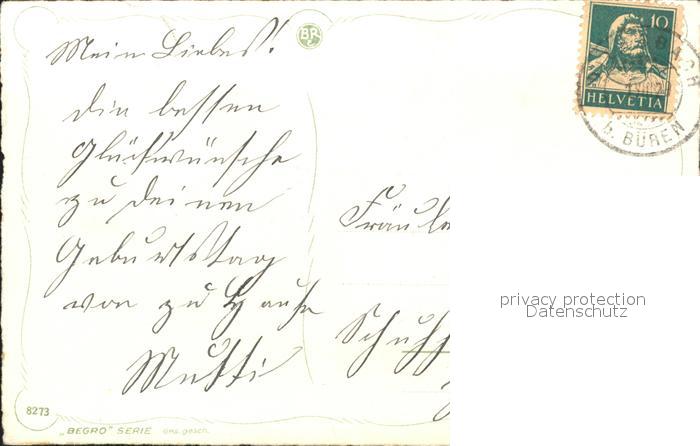 BR
10
HELVETIA
BACH
b. BÜREN
Mein Liebes!
die besten
Glückwünsche
zu deinen
Geburtstag
von zu Hause
Mutti
Fräule
privacy protection
Datenschutz
8273
„BEGRO" SERIE ges. gesch.